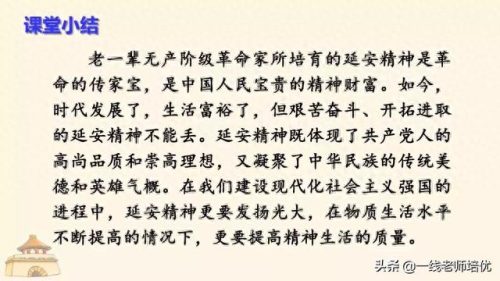 课堂小结
老一辈无产阶级革命家所培育的延安精神是革
命的传家宝，是中国人民宝贵的精神财富。如今，
时代发展了，生活富裕了，但艰苦奋斗、开拓进取
的延安精神不能丢。延安精神既体现了共产党人的
高尚品质和崇高理想，又凝聚了中华民族的传统美
德和英雄气概。在我们建设现代化社会主义强国的
进程中，延安精神更要发扬光大，在物质生活水平
不断提高的情况下，更要提高精神生活的质量。
头条@一线老师培优